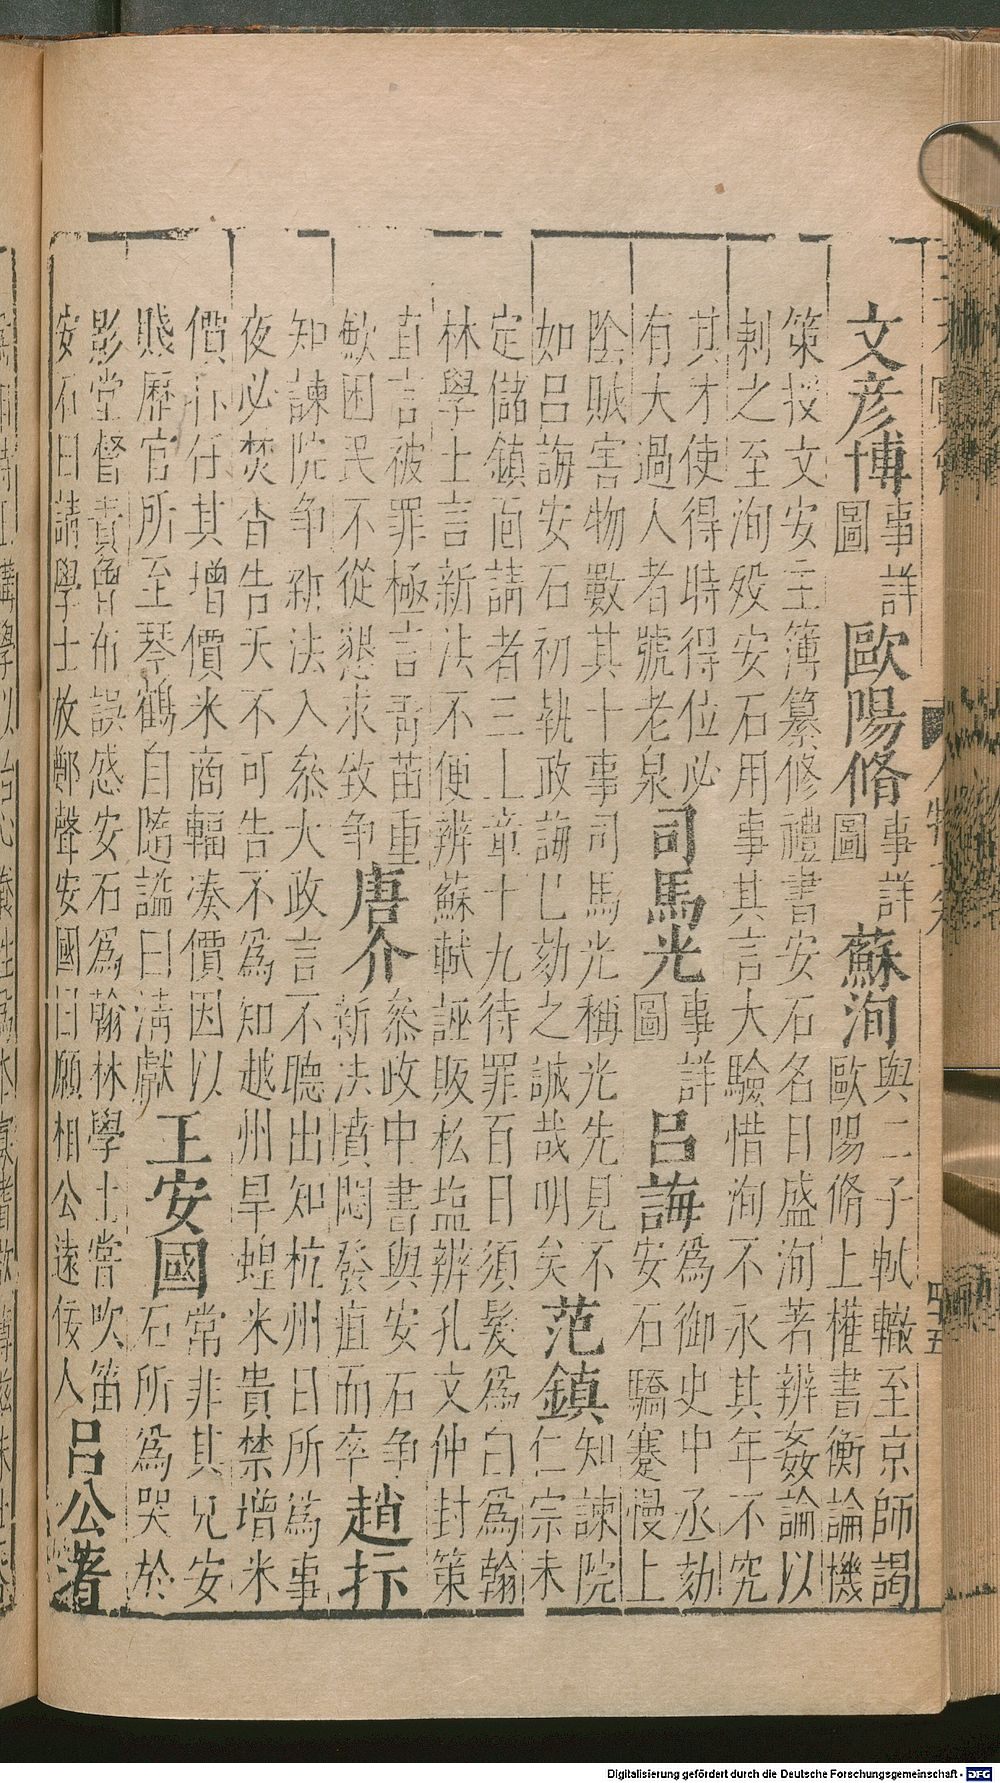 三才圖會
人物六卷
四十五
文彥博 事詳
圖
歐陽脩 事詳
圖
蘇洵 與二子軾轍至京師謁
歐陽脩上權書衡論機
策授文安主簿纂修禮書安石名日盛洵若辨姦論以
刺之至洵歿安石用事其言大驗惜洵不永其年不究
其才使得時得位必
有大過人者號老泉
司馬光 事詳
圖
呂誨 爲御史中丞劾
安石驕蹇慢上
陰賊害物數其十事司馬光稱光先見不
如呂誨安石初執政誨已劾之誠哉明矣
范鎮 知諫院
仁宗未
定儲鎮面請者三上章十九待罪百日須髮爲白爲翰
林學士言新法不便辨蘇軾誣販私塩辨孔文仲封策
直言被罪極言青苗重
歛困民不從懇求致争
唐介 叅政中書與安石争
新法憤悶發疽而卒
趙抃
知諫院争新法入叅大政言不聽出知杭州日所爲事
夜必焚香告天不可告不爲知越州旱蝗米貴禁增米
價抃任其增價米商輻湊價因以
賤歷官所至琴鶴自隨謚曰清獻
王安國 常非其兄安
石所爲哭於
影堂督責曾布誤惑安石爲翰林學士嘗吹笛
安石曰請學士放鄭聲安國曰願相公遠佞人
呂公著
Digitalisierung gefördert durch die Deutsche Forschungsgemeinschaft - DFG